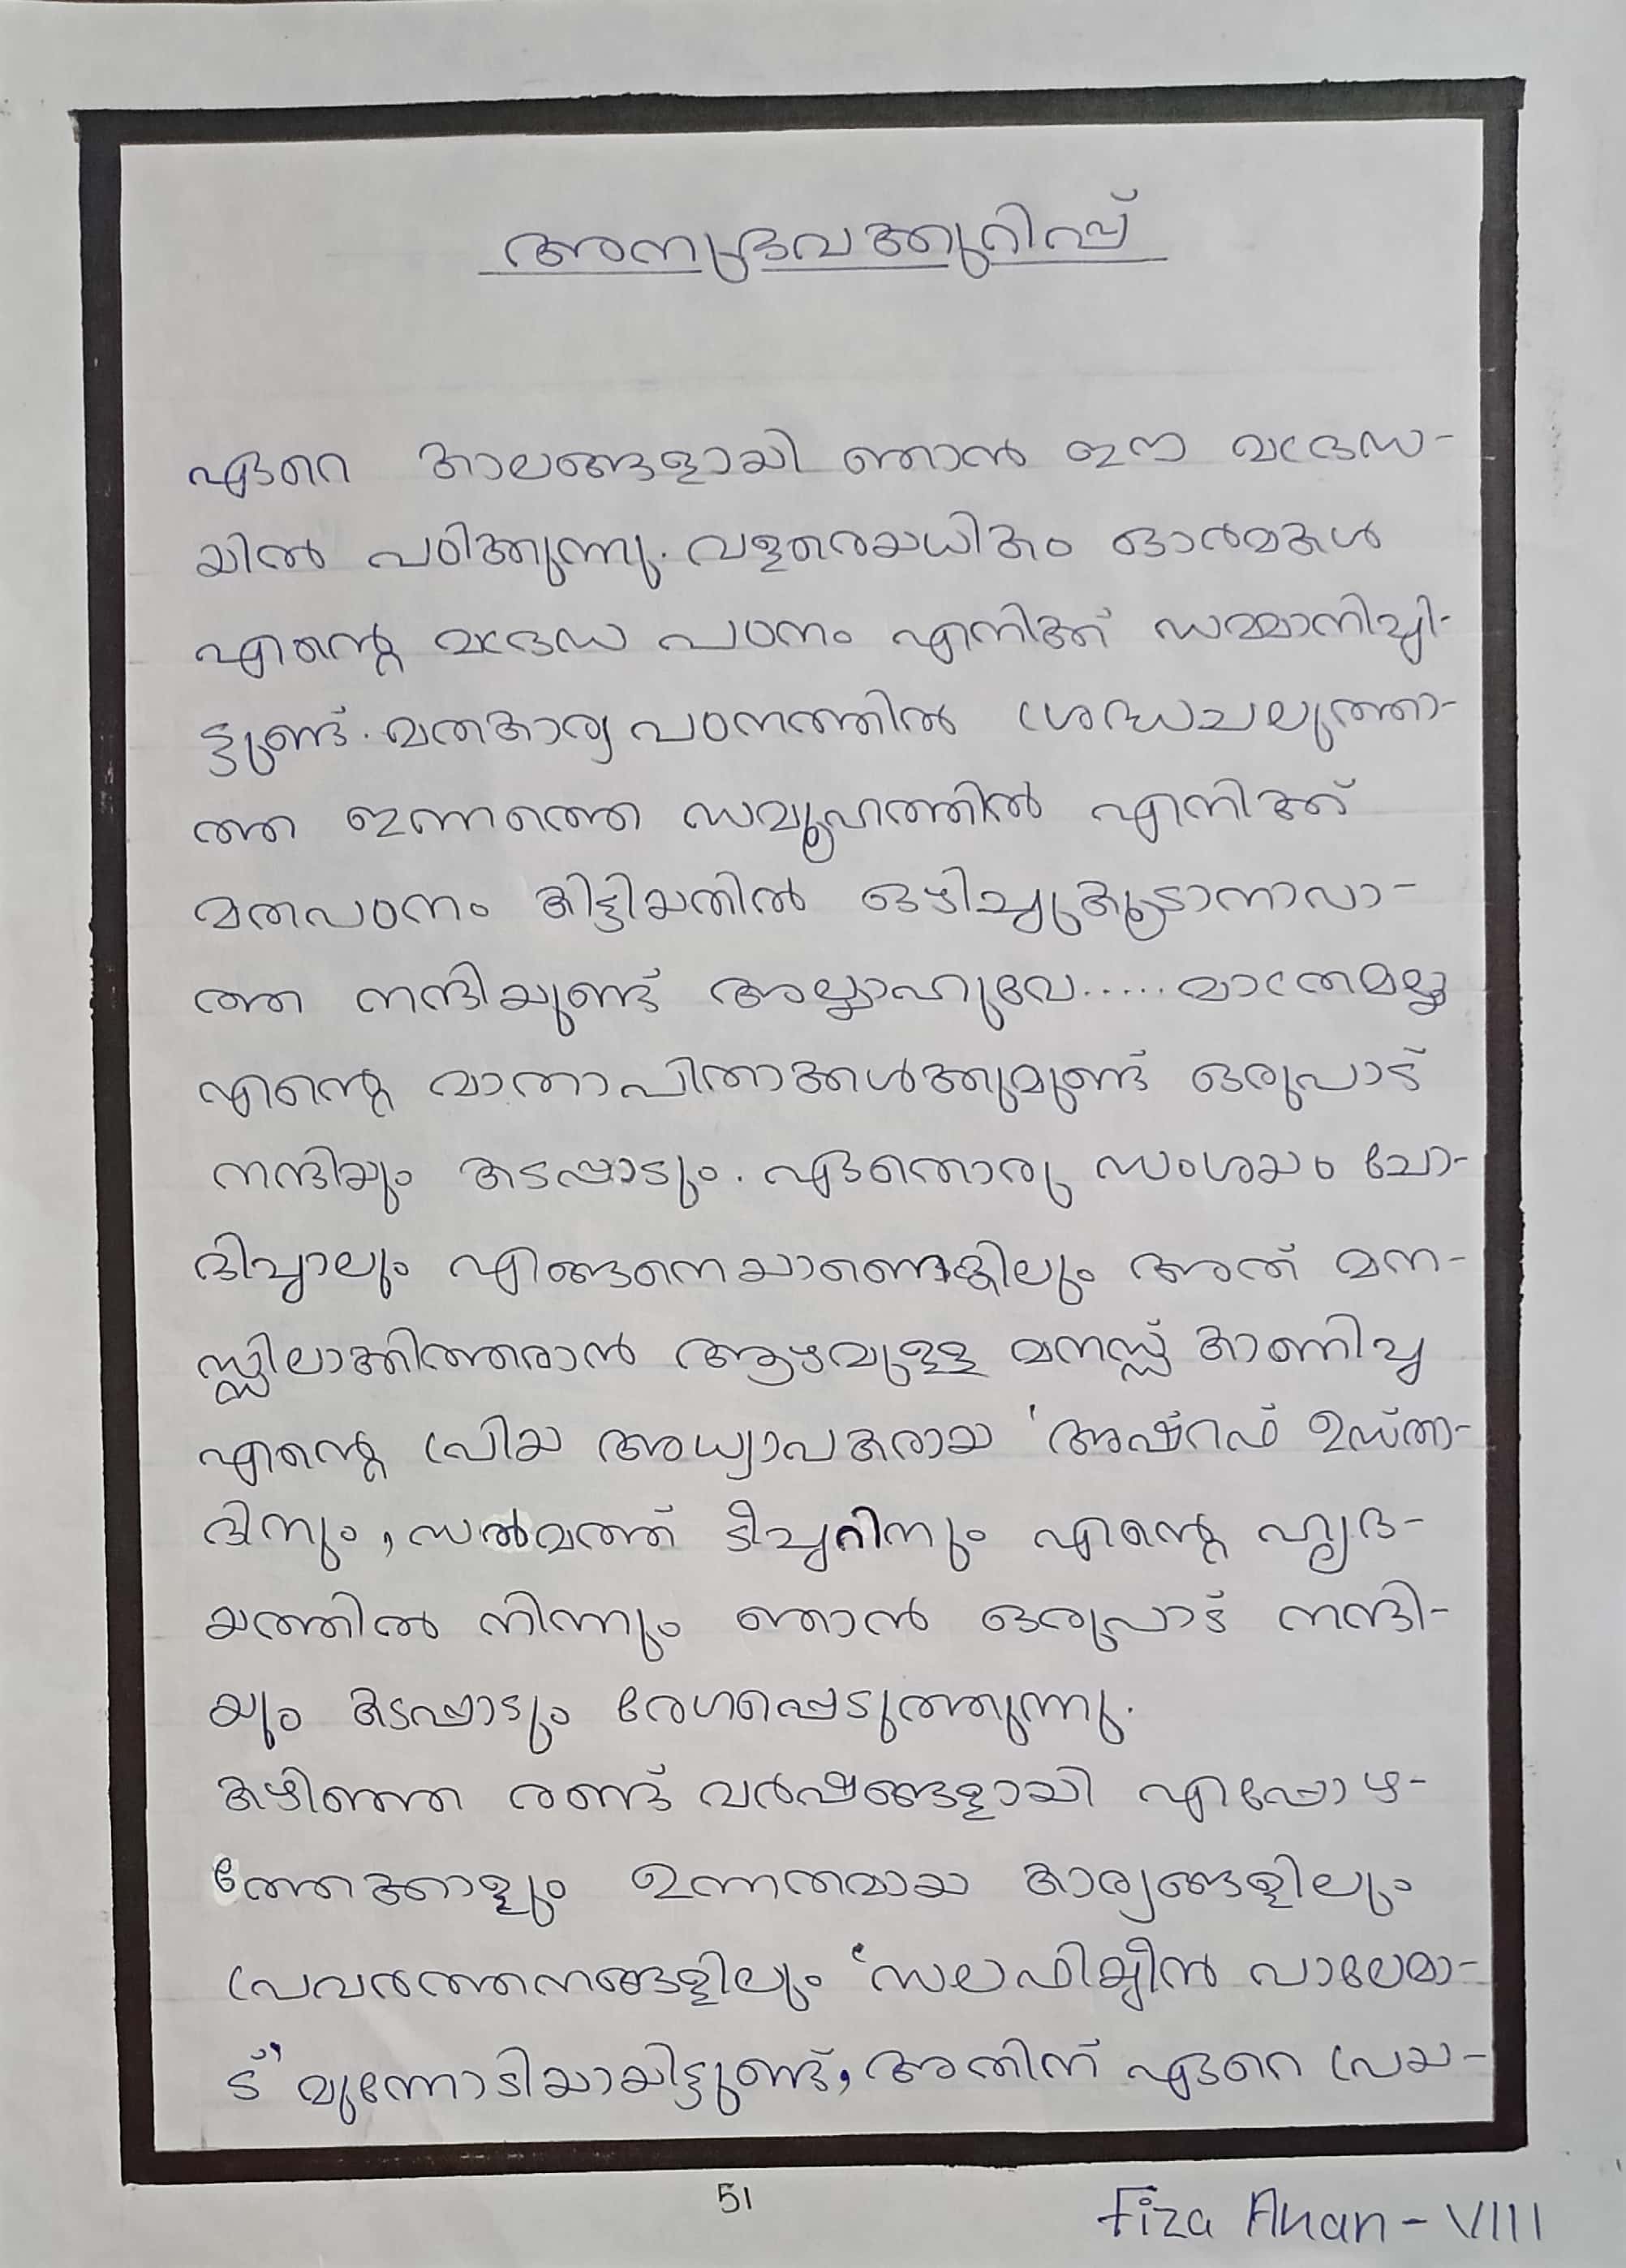 അനുഭവക്കുറിപ്പ്
ഏറെ കാലങ്ങളായി ഞാൻ ഈ മദ്രസ-
യിൽ പഠിക്കുന്നു. വളരെയധികം ഓർമകൾ
എന്റെ മദ്രസ പഠനം എനിക്ക് സമ്മാനിച്ചി-
ട്ടുണ്ട്. മതകാര്യ പഠനത്തിൽ ശ്രദ്ധചലുത്താ-
ത്ത ഇന്നത്തെ സമൂഹത്തിൽ എനിക്ക്
മതപഠനം കിട്ടിയതിൽ ഒഴിച്ചുകൂടാനാവാ-
ത്ത നന്ദിയുണ്ട് അല്ലാഹുവേ..... മാത്രമല്ല
എന്റെ മാതാപിതാക്കൾക്കുമുണ്ട് ഒരുപാട്
നന്ദിയും കടപ്പാടും. ഏതൊരു സംശയം ചോ-
ദിച്ചാലും എങ്ങനെയാണെങ്കിലും അത് മന-
സ്സിലാക്കിത്തരാൻ ആഴമുള്ള മനസ്സ് കാണിച്ച
എന്റെ പ്രിയ അധ്യാപകരായ 'അഷ്റഫ് ഉസ്താ-
ദിനും, സൽമത്ത് ടീച്ചറിനും എന്റെ ഹൃദ-
യത്തിൽ നിന്നും ഞാൻ ഒരുപാട് നന്ദി-
യും കടപ്പാടും രേഗപ്പെടുത്തുന്നു.
കഴിഞ്ഞ രണ്ട് വർഷങ്ങളായി എപ്പോഴ-
ത്തേക്കാളും ഉന്നതമായ കാര്യങ്ങളിലും
പ്രവർത്തനങ്ങളിലും 'സലഫിയ്യീൻ പാലേമാ-
ട്' മുന്നോടിയായിട്ടുണ്ട്, അതിന് ഏറെ പ്രയ-
51
Fiza Ahan - VIII